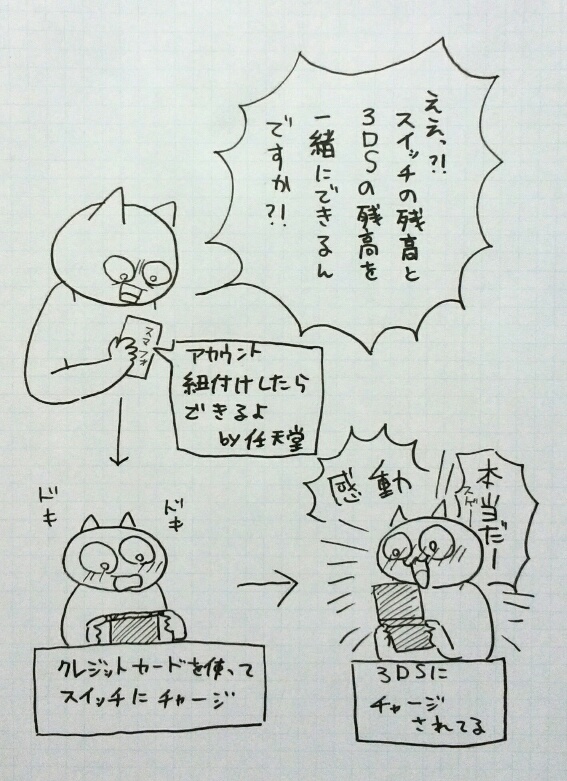 ええっ?!
スイッチの残高と
3DSの残高を
一緒にできるん
ですか?!
スマフォ
アカウント
紐付けしたら
できるよ
by任天堂
ドキ
ドキ
クレジットカードを使って
スイッチにチャージ
感動
本当だー
スゲー
3DSに
チャージ
されてる